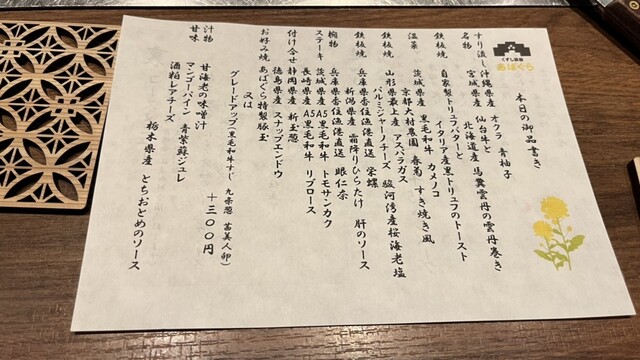 くずし鉄板
あばぐら
本日の御品書き
すり流し 沖縄県産 オクラ 青柚子
名物 宮城県産 仙台牛と 北海道産 馬糞雲丹の雲丹巻き
鉄板焼 自家製トリュフバターと イタリア産黒トリュフのトースト
温菜 茨城県産 黒毛和牛 カメノコ
京都大村農園 春菊 すき焼き風
鉄板焼 山形県最上産 アスパラガス
パルミジャーノチーズ 駿河湾産桜海老塩
鉄板焼 兵庫県香住漁港直送 栄螺
新潟県産 霜降りひらたけ 肝のソース
椀物 兵庫県香住漁港直送 眼仁奈
ステーキ 茨城県産A5黒毛和牛 トモサンカク
長崎県産 A5黒毛和牛 リブロース
付け合せ 静岡県産 新玉葱
徳島県産 スナップエンドウ
お好み焼 あばぐら特製豚玉
又は
グレードアップ(黒毛和牛すじ 九条葱 茜美人卵)
+三〇〇円
汁物 甘海老の味噌汁
甘味 マンゴーパイン 青紫蘇ジュレ
酒粕レアチーズ
栃木県産 とちおとめのソース